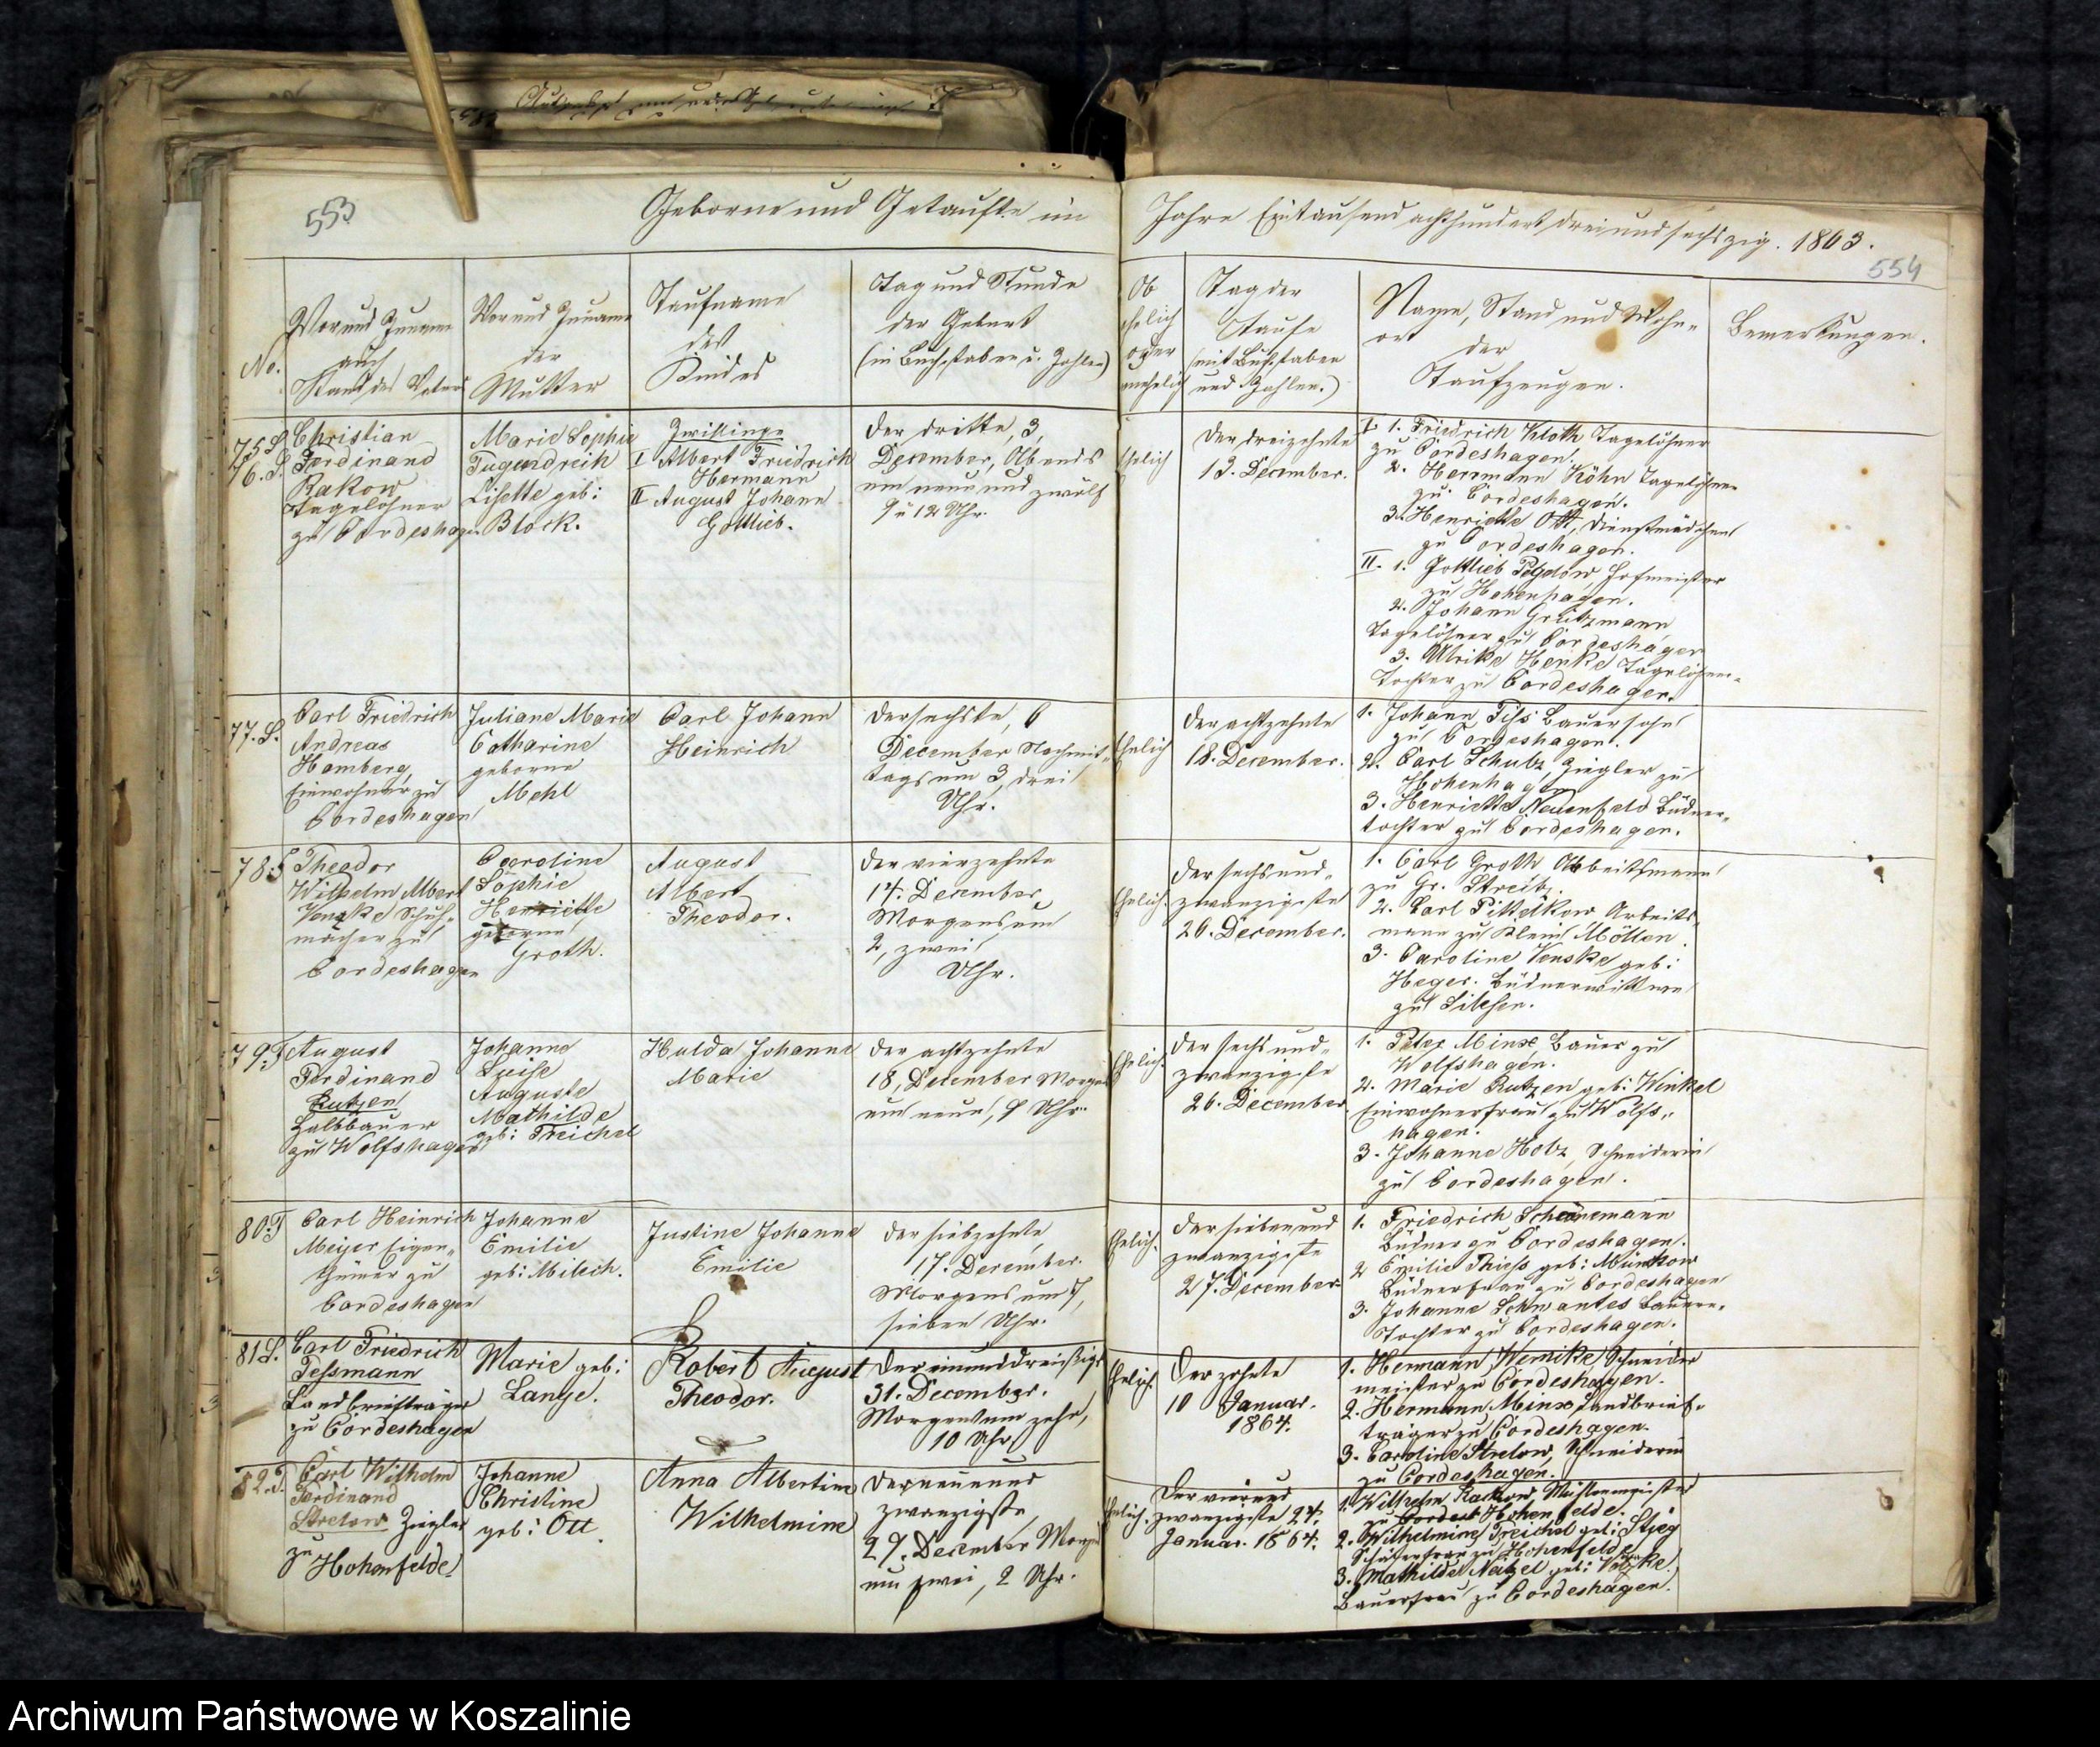 553
Geborne und Getaufte im
Jahre Eintausend achthundert drei und sechszig. 1863.
554
No.
Vor und Zuname
auch
Stand des Vaters
Vor und Zuname
der
Mutter
Taufname
des
Kindes
Tag und Stunde
der Geburt
(in Buchstaben u. Zahlen)
Ob
ehelich
oder
unehelich
Tag der
Taufe
(mit Buchstaben
und Zahlen.)
Name, Stand und Wohn-
ort der
Taufzeugen.
Bemerkungen.
75 S.
76. S.
Christian
Ferdinand
Rakow
Tagelöhner
zu Cordeshagen
Marie Sophie
Tugendreich
Lisette geb:
Block.
Zwillinge
I Albert Friedrich
Hermann
II August Johann
Gottlieb.
Der dritte, 3,
December, Abends
um neun und zwölf
9 u 12 Uhr.
Ehelich
Der dreizehnte
13. December.
I. 1. Friedrich Kloth Tagelöhner
zu Cordeshagen.
2. Herrmann Köhn Tagelöhner
zu Cordeshagen.
3. Henriette Ott, Dienstmädchen
zu Cordeshagen.
II. 1. Gottlieb Hofmeister
zu Hohenhagen.
2. Johann Grützmann
Tagelöhner zu Cordeshagen
3. Ulrike Henke Tagelöhner-
tochter zu Cordeshagen.
77. S.
Carl Friedrich
Andreas
Homberg,
Einwohner zu
Cordeshagen
Juliane Marie
Catharine
geborne
Mehl
Carl Johann
Heinrich
Der sechste, 6
December Nachmit-
tags um 3, drei
Uhr.
Ehelich
Der achtzehnte
18. December.
1. Johann Bauersohn
zu Cordeshagen.
2. Carl Schulz, Ziegler zu
Hohenhagen
3. Henriette Neuenfeld Büdner-
tochter zu Cordeshagen.
78. S
Theodor
Wilhelm Albert
Venzke Schuh-
macher zu
Cordeshagen
Caroline
Sophie
Henriette
geborne
Groth.
August
Albert
Theodor.
Der vierzehnte
14. December
Morgens um
2, zwei
Uhr.
Ehelich.
Der sechs und-
zwanzigste
26. December.
1. Carl Groth Arbeitsmann
zu Gr. Streitz.
2. Carl Pittelkow Arbeits-
mann zu Klein Möllen.
3. Caroline Venske geb:
Heger. Büdnerwittwe
zu
79. T
August
Ferdinand
Rutzen
Halbbauer
zu Wolfshagen
Johanne
Luise
Auguste
Mathilde
geb: Treichel
Hulda Johanne
Marie
Der achtzehnte
18, December Morgens
um neun, 9 Uhr.
Ehelich.
Der sechs und-
zwanzigste
26. December
1. Peter Minx Bauer zu
Wolfshagen.
2. Marie Rutzen geb: Winkel
Einwohnerfrau zu Wolfs-
hagen.
3. Johanne Holz, Schneiderin
zu Cordeshagen.
80. T
Carl Heinrich
Meyer Eigen-
thümer zu
Cordeshagen
Johanne
Emilie
geb: Milech.
Justine Johanne
Emilie
Der siebzehnte,
17. December.
Morgens um 7,
sieben Uhr.
Ehelich.
Der sieben und
zwanzigste
27. December
1. Friedrich Schünemann
Büdner zu Cordeshagen.
2 Emilie Thiess geb: Münchow
Büdnerfrau zu Cordeshagen
3. Johanne Schwantes Bauern-
tochter zu Cordeshagen.
81 S.
Carl Friedrich
Tessmann
Landbriefträger
zu Cordeshagen
Marie geb:
Lange.
Robert August
Theodor.
Der einunddreißigste
31. December.
Morgens um zehn,
10 Uhr
Ehelich.
Der zehnte
10 Januar.
1864.
1. Hermann Wernike Schneider
meister zu Cordeshagen.
2. Hermann Minx Landbrief-
träger zu Cordeshagen.
3. Caroline Stretow, Schneiderin
zu Cordeshagen.
82. T.
Carl Wilhelm
Ferdinand
Stretow Ziegler
zu
Hohenfelde
Johanne
Christine
geb: Ott.
Anna Albertine
Wilhelmine
Der neun und
zwanzigste
29. December Morgens
um zwei, 2 Uhr.
Ehelich.
Der vier und
zwanzigste 24.
Januar. 1864.
1. Wilhelm Rackow Mühlenmeister
zu Hohenfelde.
2. Wilhelmine Treichel geb: Stieg
Schäferfrau zu Hohenfelde
3. Mathilde Neitzel geb: Venzke
Bauerfrau zu Cordeshagen.
Archiwum Państwowe w Koszalinie